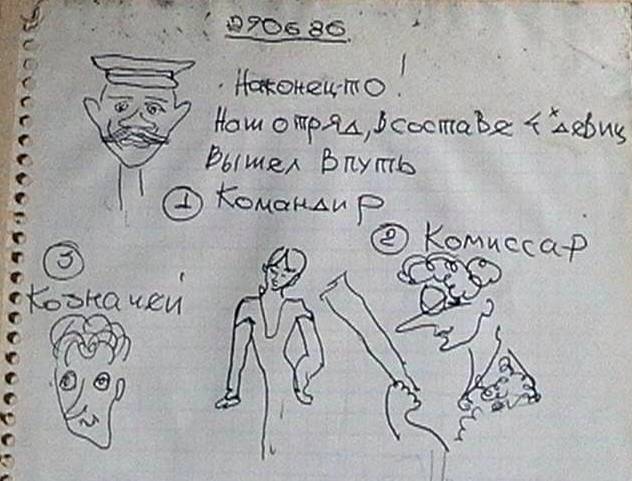 290686
Наконец-то!
Наш отряд, в составе 4х девиц
Вышел в путь
1 Командир
2 Комиссар
3
Козначей